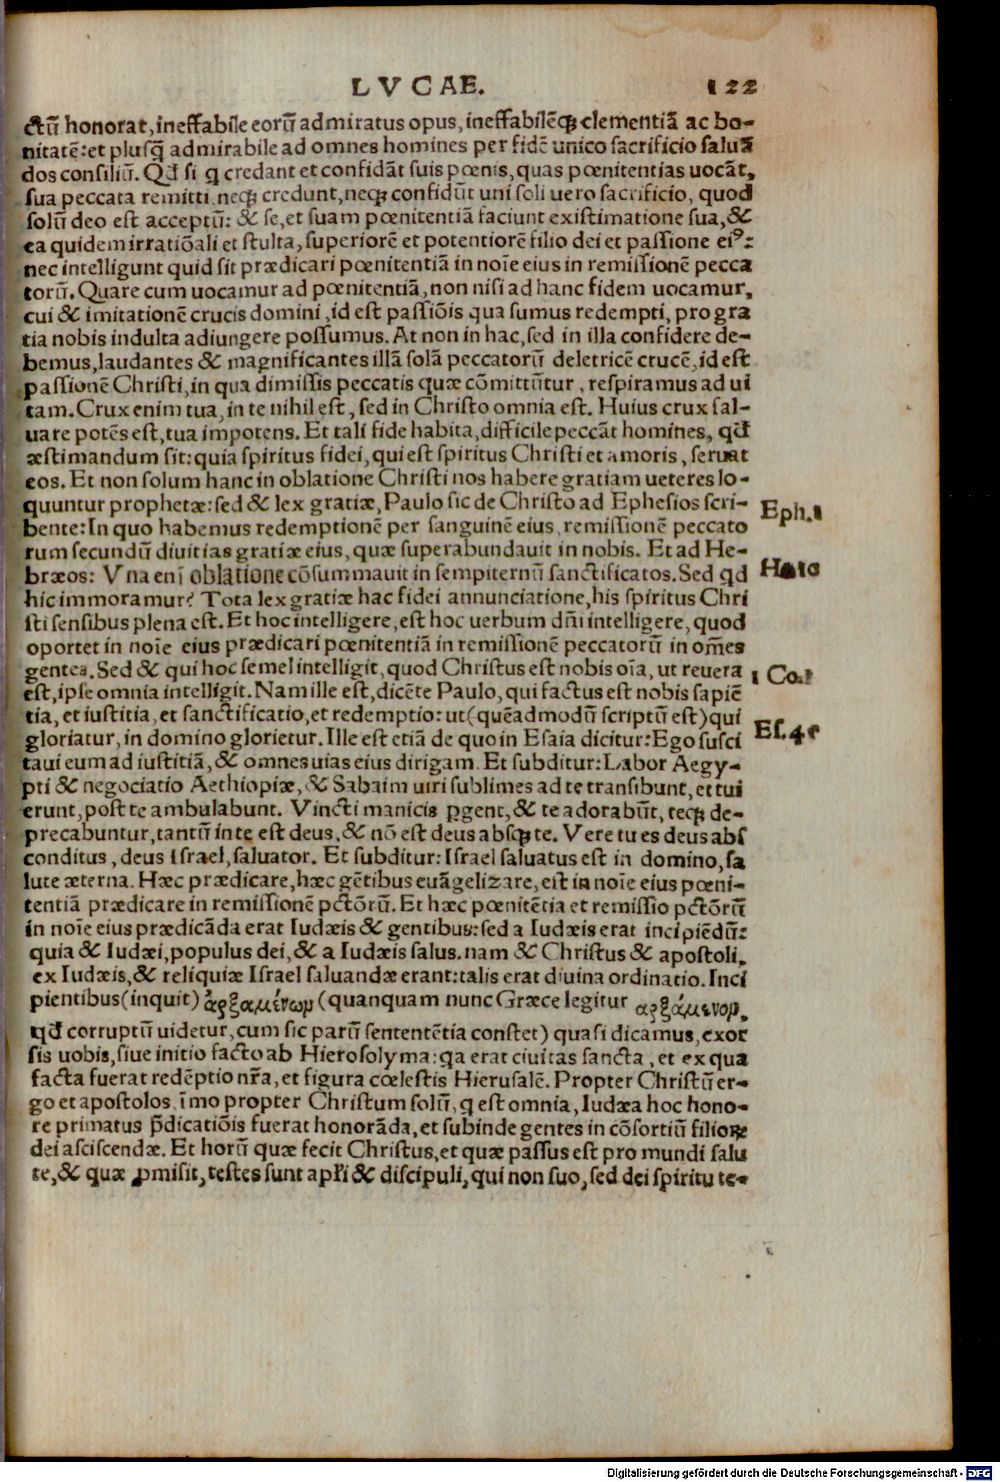 LVCAE. 122
ctū honorat, ineffabile eorū admiratus opus, ineffabilēq́ꝫ clementiā ac bo-
nitatē: et plusq̄ admirabile ad omnes homines per fidē unico sacrificio saluā
dos consiliū. Qđ si q credant et confidāt suis pœnis, quas pœnitentias uocāt,
sua peccata remitti, neqꝫ credunt, neqꝫ confidūt uni soli uero sacrificio, quod
solū deo est acceptū: & se, et suam pœnitentiā faciunt existimatione sua, &
ea quidem irratiōali et stulta, superiorē et potentiorē filio dei et passione eiꝰ:
nec intelligunt quid sit prædicari pœnitentiā in noīe eius in remissionē pecca
torū. Quare cum uocamur ad pœnitentiā, non nisi ad hanc fidem uocamur,
cui & imitationē crucis domini, id est passiōis qua sumus redempti, pro gra
tia nobis indulta adiungere possumus. At non in hac, sed in illa confidere de-
bemus, laudantes & magnificantes illā solā peccatorū deletricē crucē, id est
passionē Christi, in qua dimissis peccatis quæ cōmittūtur, respiramus ad ui
tam. Crux enim tua, in te nihil est, sed in Christo omnia est. Huius crux sal-
uare potēs est, tua impotens. Et tali fide habita, difficile peccāt homines, qđ
æstimandum sit: quia spiritus fidei, qui est spiritus Christi et amoris, seruat
eos. Et non solum hanc in oblatione Christi nos habere gratiam ueteres lo-
quuntur prophetæ: sed & lex gratiæ, Paulo sic de Christo ad Ephesios scri-
bente: In quo habemus redemptionē per sanguinē eius, remissionē peccato
rum secundū diuitias gratiæ eius, quæ superabundauit in nobis. Et ad He-
bræos: Vna enī oblatione cōsummauit in sempiternū sanctificatos. Sed qd
hic immoramur? Tota lex gratiæ hac fidei annunciatione, his spiritus Chri
sti sensibus plena est. Et hoc intelligere, est hoc uerbum dñi intelligere, quod
oportet in noīe eius prædicari pœnitentiā in remissionē peccatorū in om̄es
gentes. Sed & qui hoc semel intelligit, quod Christus est nobis oīa, ut reuera
est, ipse omnia intelligit. Nam ille est, dicēte Paulo, qui factus est nobis sapiē
tia, et iustitia, et sanctificatio, et redemptio: ut (quēadmodū scriptū est) qui
gloriatur, in domino glorietur. Ille est etiā de quo in Esaia dicitur: Ego susci
taui eum ad iustitiā, & omnes uias eius dirigam. Et subditur: Labor Aegy-
pti & negociatio Aethiopiæ, & Sabaim uiri sublimes ad te transibunt, et tui
erunt, post te ambulabunt. Vincti manicis ꝑgent, & te adorabūt, teqꝫ de-
precabuntur, tantū in te est deus, & nō est deus absqꝫ te. Vere tu es deus abs
conditus, deus Israel, saluator. Et subditur: Israel saluatus est in domino, sa
lute æterna. Hæc prædicare, hæc gētibus euāgelizare, est in noīe eius pœni-
tentiā prædicare in remissionē pctōrū. Et hæc pœnitētia et remissio pctōrū
in noīe eius prædicāda erat Iudæis & gentibus: sed a Iudæis erat incipiēdū:
quia & Iudæi, populus dei, & a Iudæis salus. nam & Christus & apostoli,
ex Iudæis, & reliquiæ Israel saluandæ erant: talis erat diuina ordinatio. Inci
pientibus (inquit) ἀρξαμένωμ (quanquam nunc Græce legitur αρξάμενομ,
qđ corruptū uidetur, cum sic parū sententētia constet) quasi dicamus, exor
sis uobis, siue initio facto ab Hierosolyma: qa erat ciuitas sancta, et ex qua
facta fuerat redēptio nr̄a, et figura cœlestis Hierusalē. Propter Christū er-
go et apostolos, īmo propter Christum solū, q est omnia, Iudæa hoc hono-
re primatus p̄dicatiōis fuerat honorāda, et subinde gentes in cōsortiū filioꝝ
dei asciscendæ. Et horū quæ fecit Christus, et quæ passus est pro mundi salu
te, & quæ ꝓmisit, testes sunt apłi & discipuli, qui non suo, sed dei spiritu te-
Eph.1
1 Co.1
Es.45
Digitalisierung gefördert durch die Deutsche Forschungsgemeinschaft - DFG